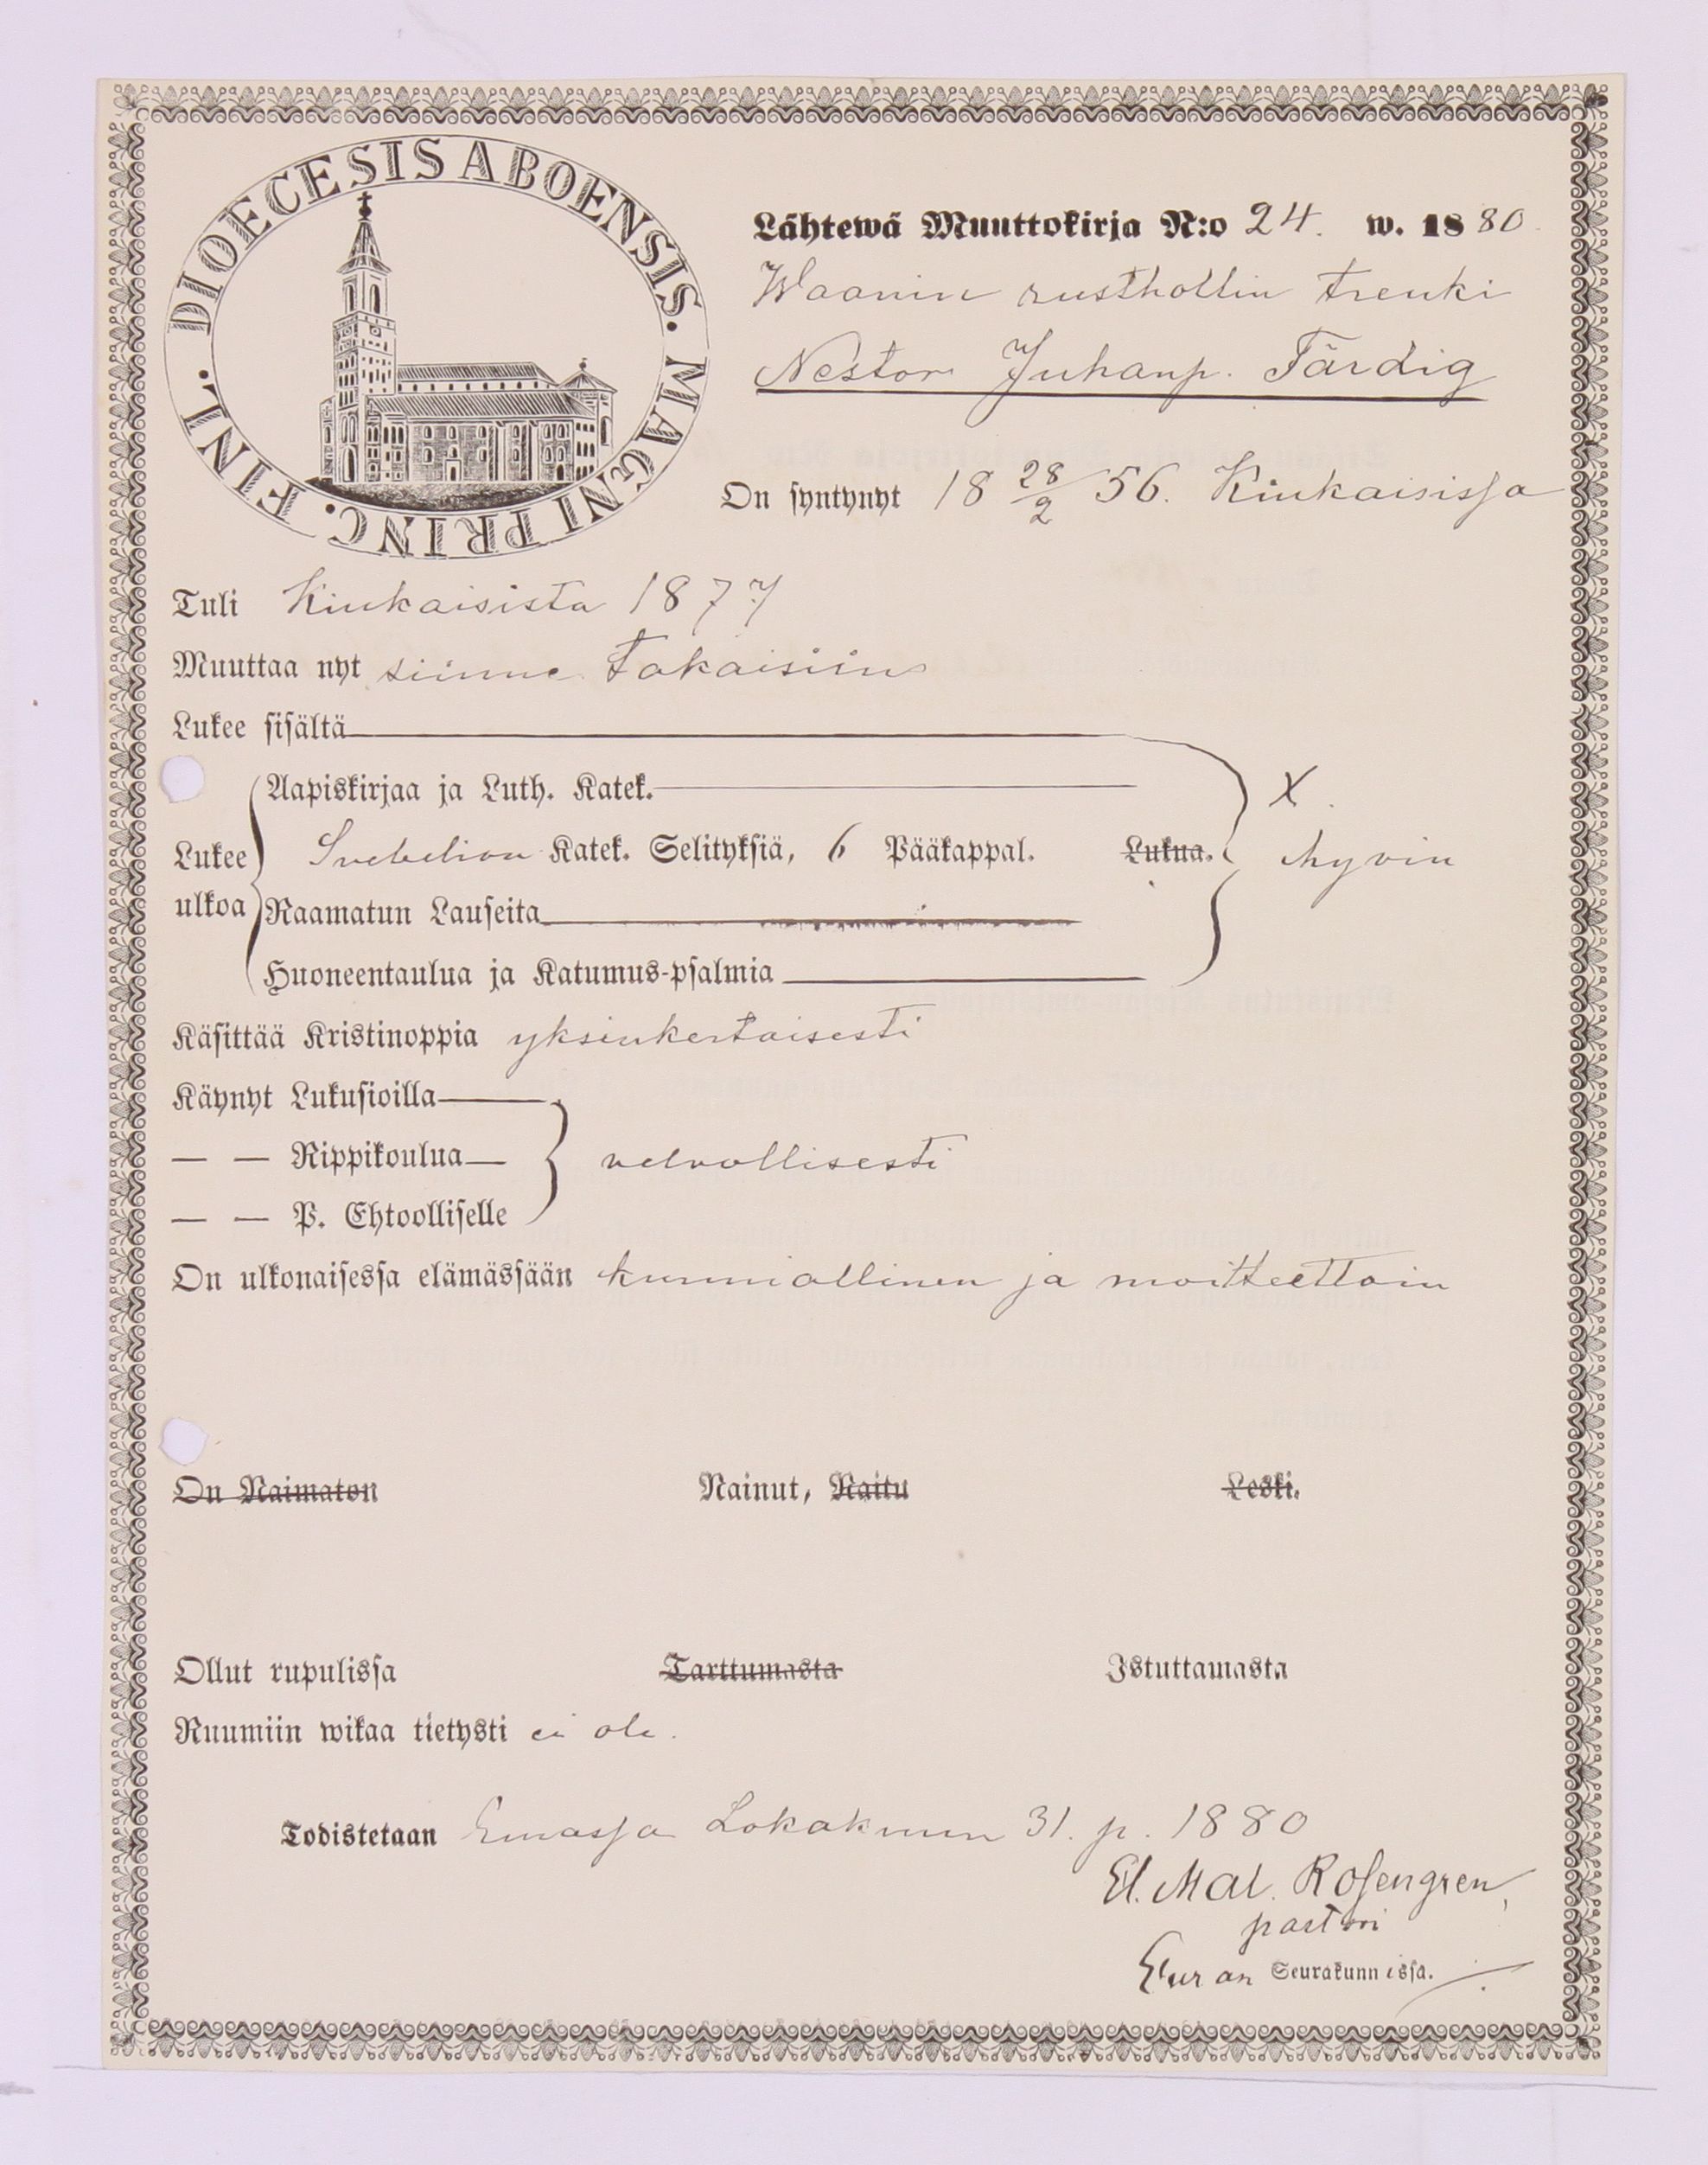 DIOECESIS ABOENSIS. MAGNI PRINC. FINL.
Lähtewä Muuttokirja N:o 24. w. 1880
Waanin rusthollin trenki
Nestor Juhanp. Färdig
On syntynyt 18 28/2 56. Kiukaisissa
Tuli Kiukaisista 1877
Muuttaa nyt siinne takaisiin
Lukee sisältä
Aapiskirjaa ja Luth. Katek. X.
Lukee Svebelion Katek. Selityksiä, 6 Pääkappal. Lukua. hyvin
ulkoa Raamatun Lauseita
Huoneentaulua ja Katumus-psalmia
Käsittää Kristinoppia yksinkertaisesti
Käynyt Lukusioilla
— — Rippikoulua — velvollisesti
— — P. Ehtoolliselle
On ulkonaisessa elämässään kunniallinen ja moitteettoin
On Naimaton Nainut, Naitu Leski.
Ollut rupulissa Tarttumasta Istuttamasta
Ruumiin wikaa tietysti ei ole.
Todistetaan Eurassa Lokakuun 31. p. 1880
El. Mal. Rosengren,
pastori
Euran Seurakunnissa.